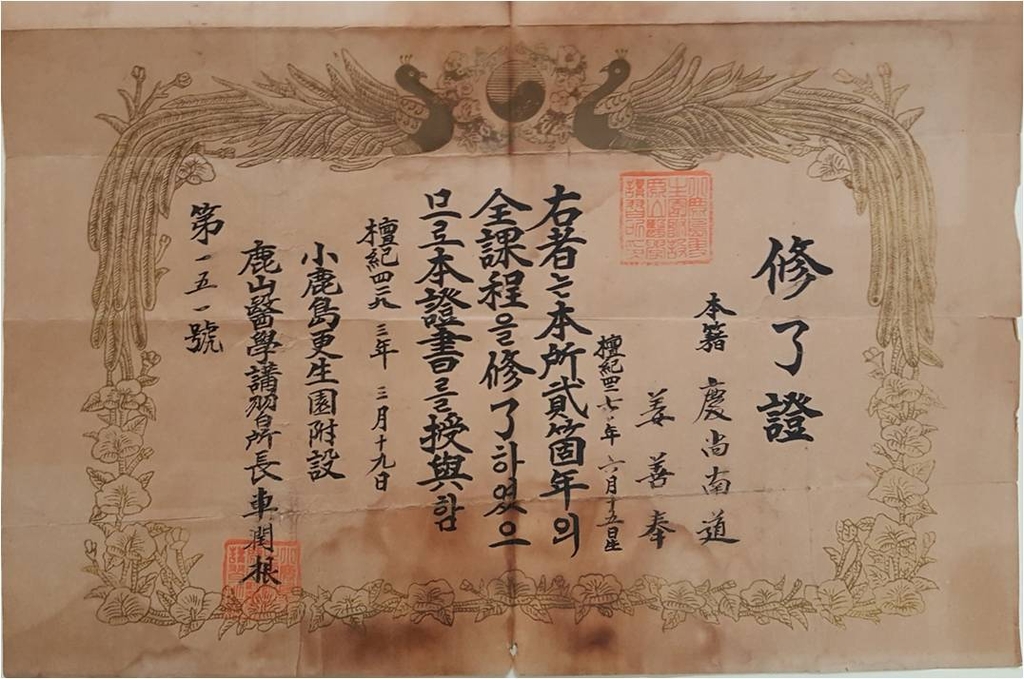 修了證
本籍 慶尚南道
姜善奉
檀紀 年 六月十五日生
右者는本所貳箇年의
全課程을修了하였으
므로本證書를授與함
檀紀四二九三年 三月十九日
小鹿島更生園附設
鹿山醫學講習所長車潤根
第一五一號